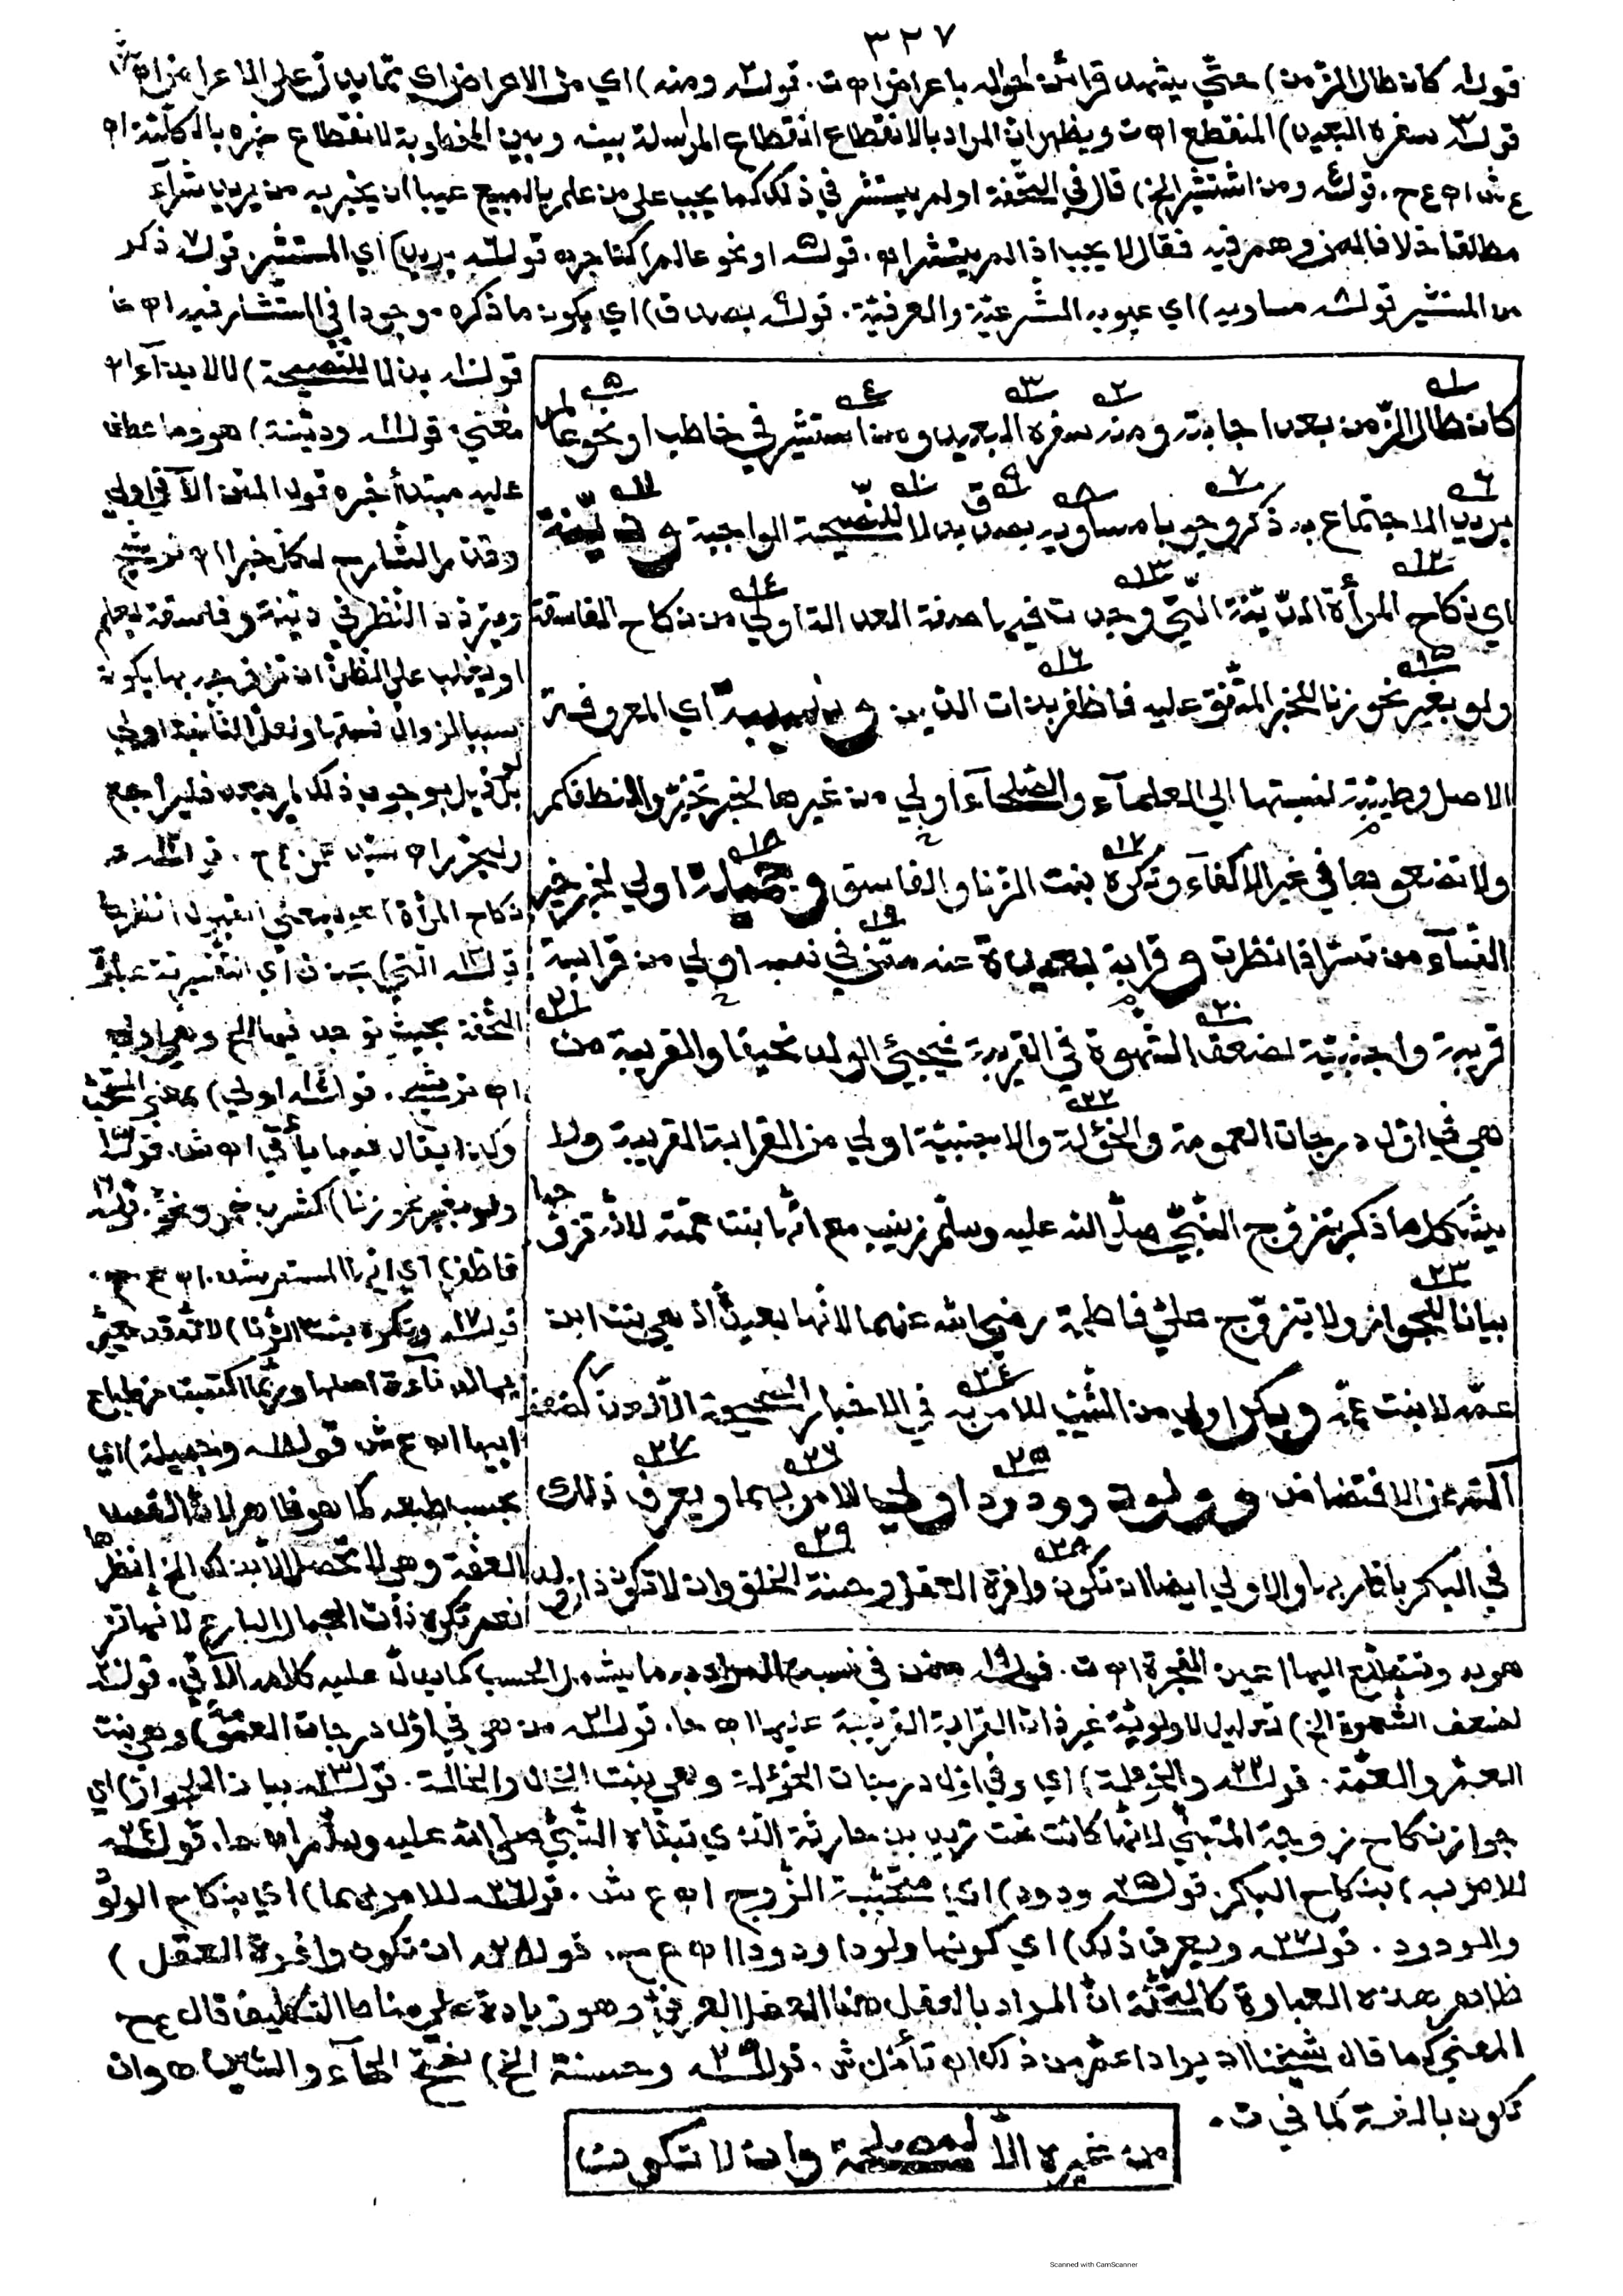 ٣٢٧
قوله كان طال الزمن) حتى يشهد قرائن احواله باعراض اه ت. قوله ومنه) اي من الاعراض اي مما يدل على الاعراض اه ش
قوله سفره البعيد) المنقطع اه ت ويظهر ان المراد بالانقطاع انقطاع المراسلة بينه وبين المخطوبة لانقطاع خبره بالكلية اه
ع ش اه ع ح. قوله ومن استشير الخ) قال في التحفة او لم يستشر في ذلك كما يجب على من علم بالمبيع عيبا ان يخبر به من يريد شراءه
مطلقا خلافا لمن وهم فيه فقال لا يجب اذا لم يستشر اه. قوله او نحو عالم) كتاجر قوله يريد) اي المستشير قوله ذكر
من المستشير قوله مساويه) اي عيوبه الشرعية والعرفية. قوله بصدق) اي يكون ما ذكره موجودا في المستشار فيه اه
كان طال الزمن بعد اجابته ومنه سفره البعيد ومن استشير في خاطب او نحو عالم
يريد الاجتماع به ذكر وجوبا مساويه بصدق بذلا للنصيحة الواجبة و دينة
اي نكاح المرأة الدينة التي وجدت فيها صفة العدالة اولى من نكاح الفاسقة
ولو بغير نحو زنا للخبر المتفق عليه فاظفر بذات الدين و نسيبة اي المعروفة
الاصل وطيبته لنسبتها الى العلمآء والصلحآء اولى من غيرها لخبر تخيروا لنطفكم
ولا تضعوها في غير الاكفآء وتكره بنت الزنا والفاسق و جميلة اولى لخبر خير
النسآء من تسر اذا نظرت و قرابة بعيدة عنه ممن في نسبه اولى من قرابة
قريبة واجنبية لضعف الشهوة في القريبة فيجيئ الولد نحيفا والقريبة من
هي في اول درجات العمومة والخؤلة والاجنبية اولى من القرابة القريبة ولا
يشكل ما ذكر بتزوج النبي صلى الله عليه وسلم زينب مع انها بنت عمته لانه تزوجها
بيانا للجواز ولا بتزوج علي فاطمة رضي الله عنهما لانها بعيدة اذ هي بنت ابن
عمه لا بنت عمه و بكر اولى من الثيب للامر به في الاخبار الصحيحة الا لعذر كضعف
آلته عن الافتضاض و ولود وودود اولى للامر بهما ويعرف ذلك
في البكر باقاربها والاولى ايضا ان تكون وافرة العقل وحسنة الخلق وان لا تكون ذات ولد
من غيره الا لمصلحة وان لا تكون
قوله بذلا للنصيحة) لا للايذآء اه
مغني. قوله ودينة) هو وما عطف
عليه مبتدأ خبره قول المتن الآتي اولى
وقدر الشارح لكل خبرا اه
ويتردد النظر في دينة وفاسقة يعلم
او يغلب على الظن ان تزوجه بها يكون
سببا لزوال فسقها ولعل الثانية اولى
بل لو قيل بوجوب ذلك لم يبعد فليراجع
وليحرر اه قوله
نكاح المرأة)
قوله التي) عبارة
التحفة بحيث توجد فيها الخ وهي اولى
اه قوله اولى) بمعنى
وكذا يقال فيما يأتي اه ش. قوله
ولو بغير نحو زنا) كشرب خمر ونحوه. قوله
فاظفر) اي ايها المسترشد. اه ع ح.
قوله وتكره بنت الزنا) لانه قد
بها لدناءة اصلها وربما اكتسبت من طباع
ابيها اه ع ش قوله وجميلة) اي
بحسب طبعه كما هو ظاهر لان القصد
العفة وهي لا تحصل الا بذلك الخ انظرها
نعم تكره ذات الجمال البارع لانها تز
هو به وتتطلع اليها اعين الفجرة اه ت. قوله ممن في نسبه) المراد به ما يشمل الحسب كما يدل عليه كلامه الآتي. قوله
لضعف الشهوة الخ) تعليل لاولوية غير ذات القرابة القريبة عليها اه. قوله من هي في اول درجات العمومة) وهي بنت
العم والعمة. قوله والخؤلة) اي وفي اول درجات الخؤلة وهي بنت الخال والخالة. قوله بيانا للجواز) اي
جواز نكاح زوجة المتبنى لانها كانت تحت زيد بن حارثة الذي تبناه النبي صلى الله عليه وسلم اه. قوله
للامر به) بنكاح البكر. قوله ودود) اي متحببة الزوج اه ع ش. قوله للامر بهما) اي بنكاح الولود
والودود. قوله ويعرف ذلك) اي كونها ولودا ودودا اه ع ح. قوله ان تكون وافرة العقل)
ظاهر هذه العبارة ان المراد بالعقل هنا العقل العرفي وهو زيادة على مناط التكليف قال ع ح
المعنى كما قال شيخنا ان يراد اعم من ذلك اه تأمل ش. قوله وحسنة الخ) بفتح الحآء والسين وان
تكون بالغة كما في ت.
Scanned with CamScanner